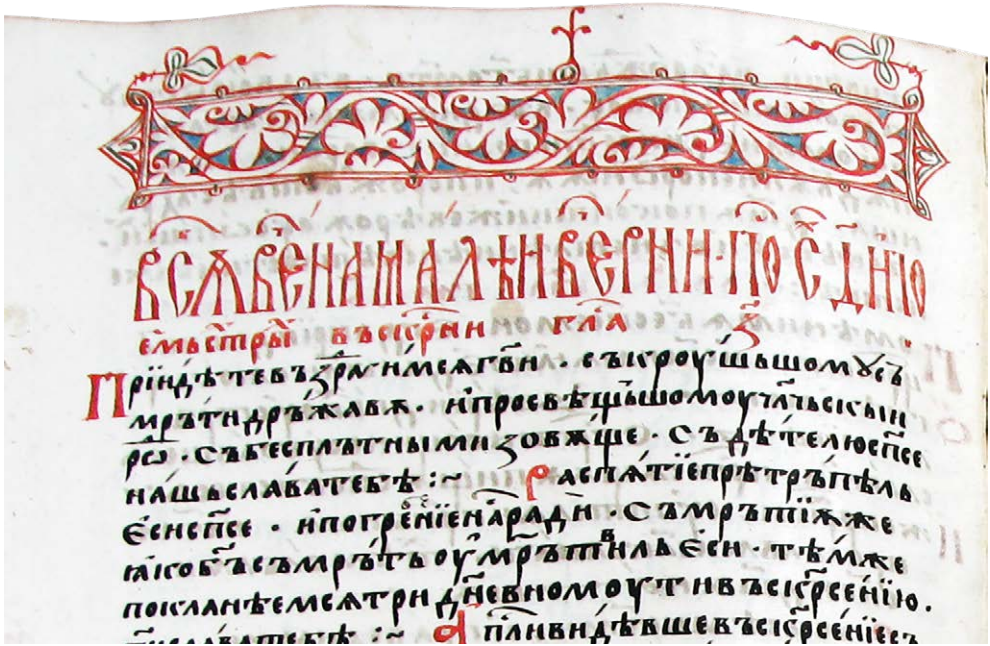 В СѪ҃ ВЕ҃ НА МАЛѢИ ВЕ҃РНИ · ПО С҃ Д҃НІО
ем҃ь стр҃ы въскр҃сни гл҃а з҃
Прїидѣте възра҃ѹимсѧ гв҃и · съкроушьшомꙋ съ
мрътидръжавѫ · и҆просвѣщьшомоу чл҃чьскыи
рѡ҃ · събесплътнымизовѫще · съдѣтелюсп҃се
нашьславатебѣ :~ Распѧтїепрѣтръпѣль
є҆сисп҃се · и҆погребенїенара҃ди · съмрътїѫже
ꙗкоб҃ъсъмрътьоумрътвильє҆си · тѣмже
покланѣемсѧтридн҃евномоутивъскр҃сенїю.
гл҃иславатебѣ :~ Ап҃ливидѣвшевъскр҃сенїесъ